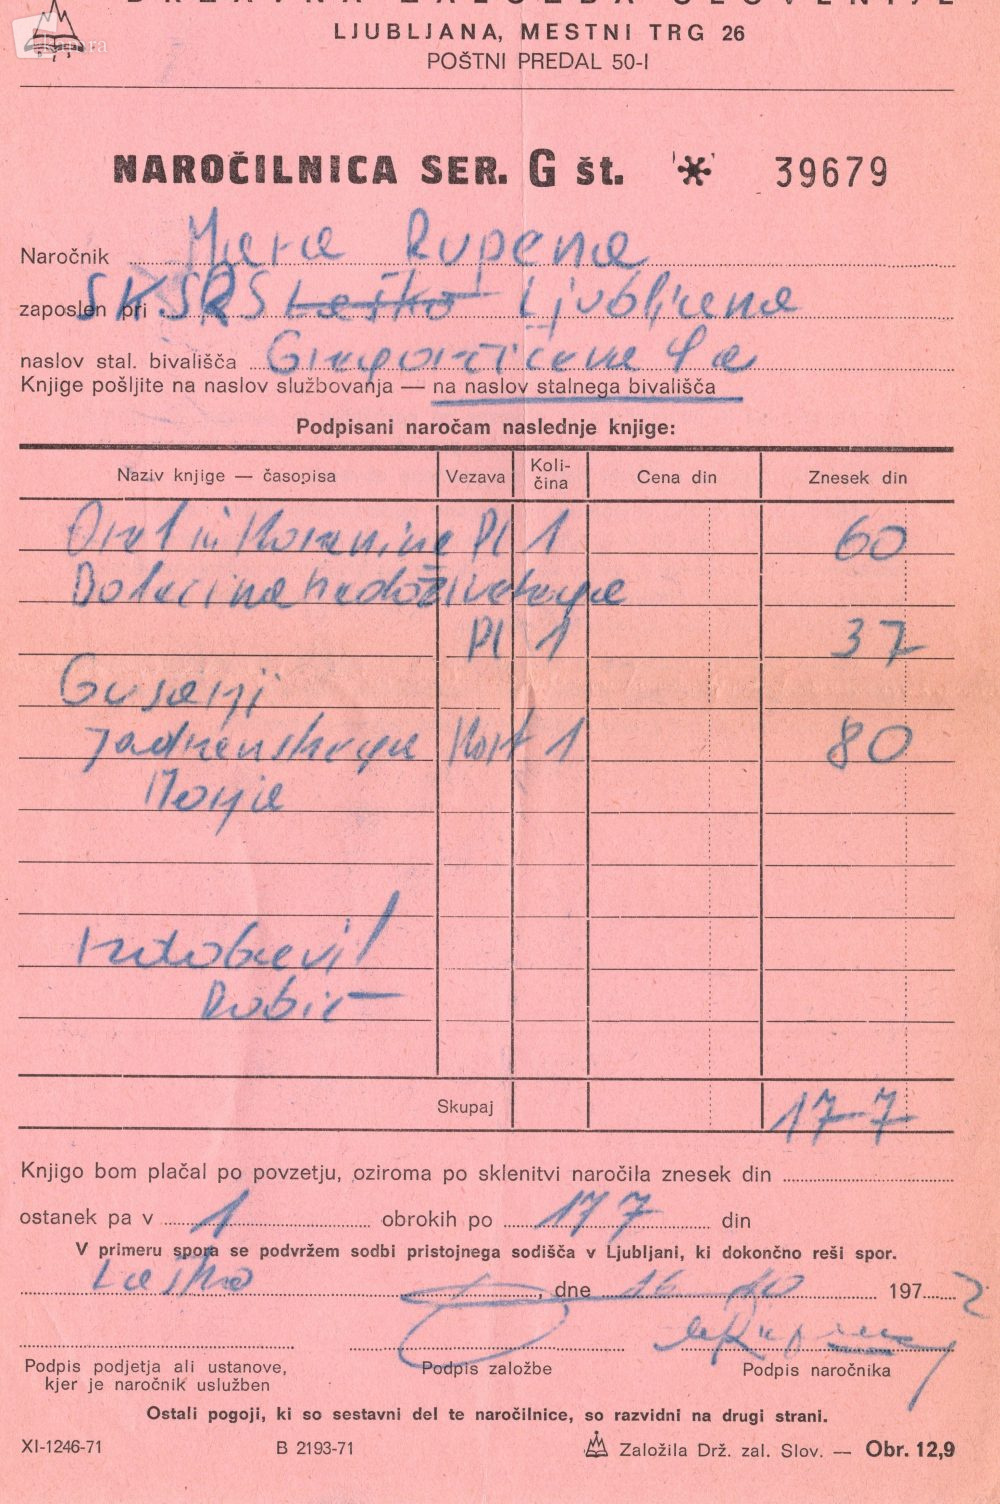 DRŽAVNA ZALOŽBA SLOVENIJE
LJUBLJANA, MESTNI TRG 26
POŠTNI PREDAL 50-I
NAROČILNICA SER. G št. * 39679
Naročnik Mara Rupena
zaposlen pri SKSRS Laško Ljubljana
naslov stal. bivališča Gregorčičeva 4a
Knjige pošljite na naslov službovanja — na naslov stalnega bivališča
Podpisani naročam naslednje knjige:
Naziv knjige — časopisa Vezava Koli-čina Cena din Znesek din
Orel in Korenine Pl 1 60
Bolečina nedoživetega
Pl 1 37
Gusarji
Jadranskega Kart 1 80
Morja
Rubit
Skupaj 177
Knjigo bom plačal po povzetju, oziroma po sklenitvi naročila znesek din
ostanek pa v 1 obrokih po 177 din
V primeru spora se podvržem sodbi pristojnega sodišča v Ljubljani, ki dokončno reši spor.
Laško, dne 16 10 1972
Podpis podjetja ali ustanove, kjer je naročnik uslužben
Podpis založbe
Podpis naročnika
Ostali pogoji, ki so sestavni del te naročilnice, so razvidni na drugi strani.
XI-1246-71 B 2193-71 Založila Drž. zal. Slov. — Obr. 12,9